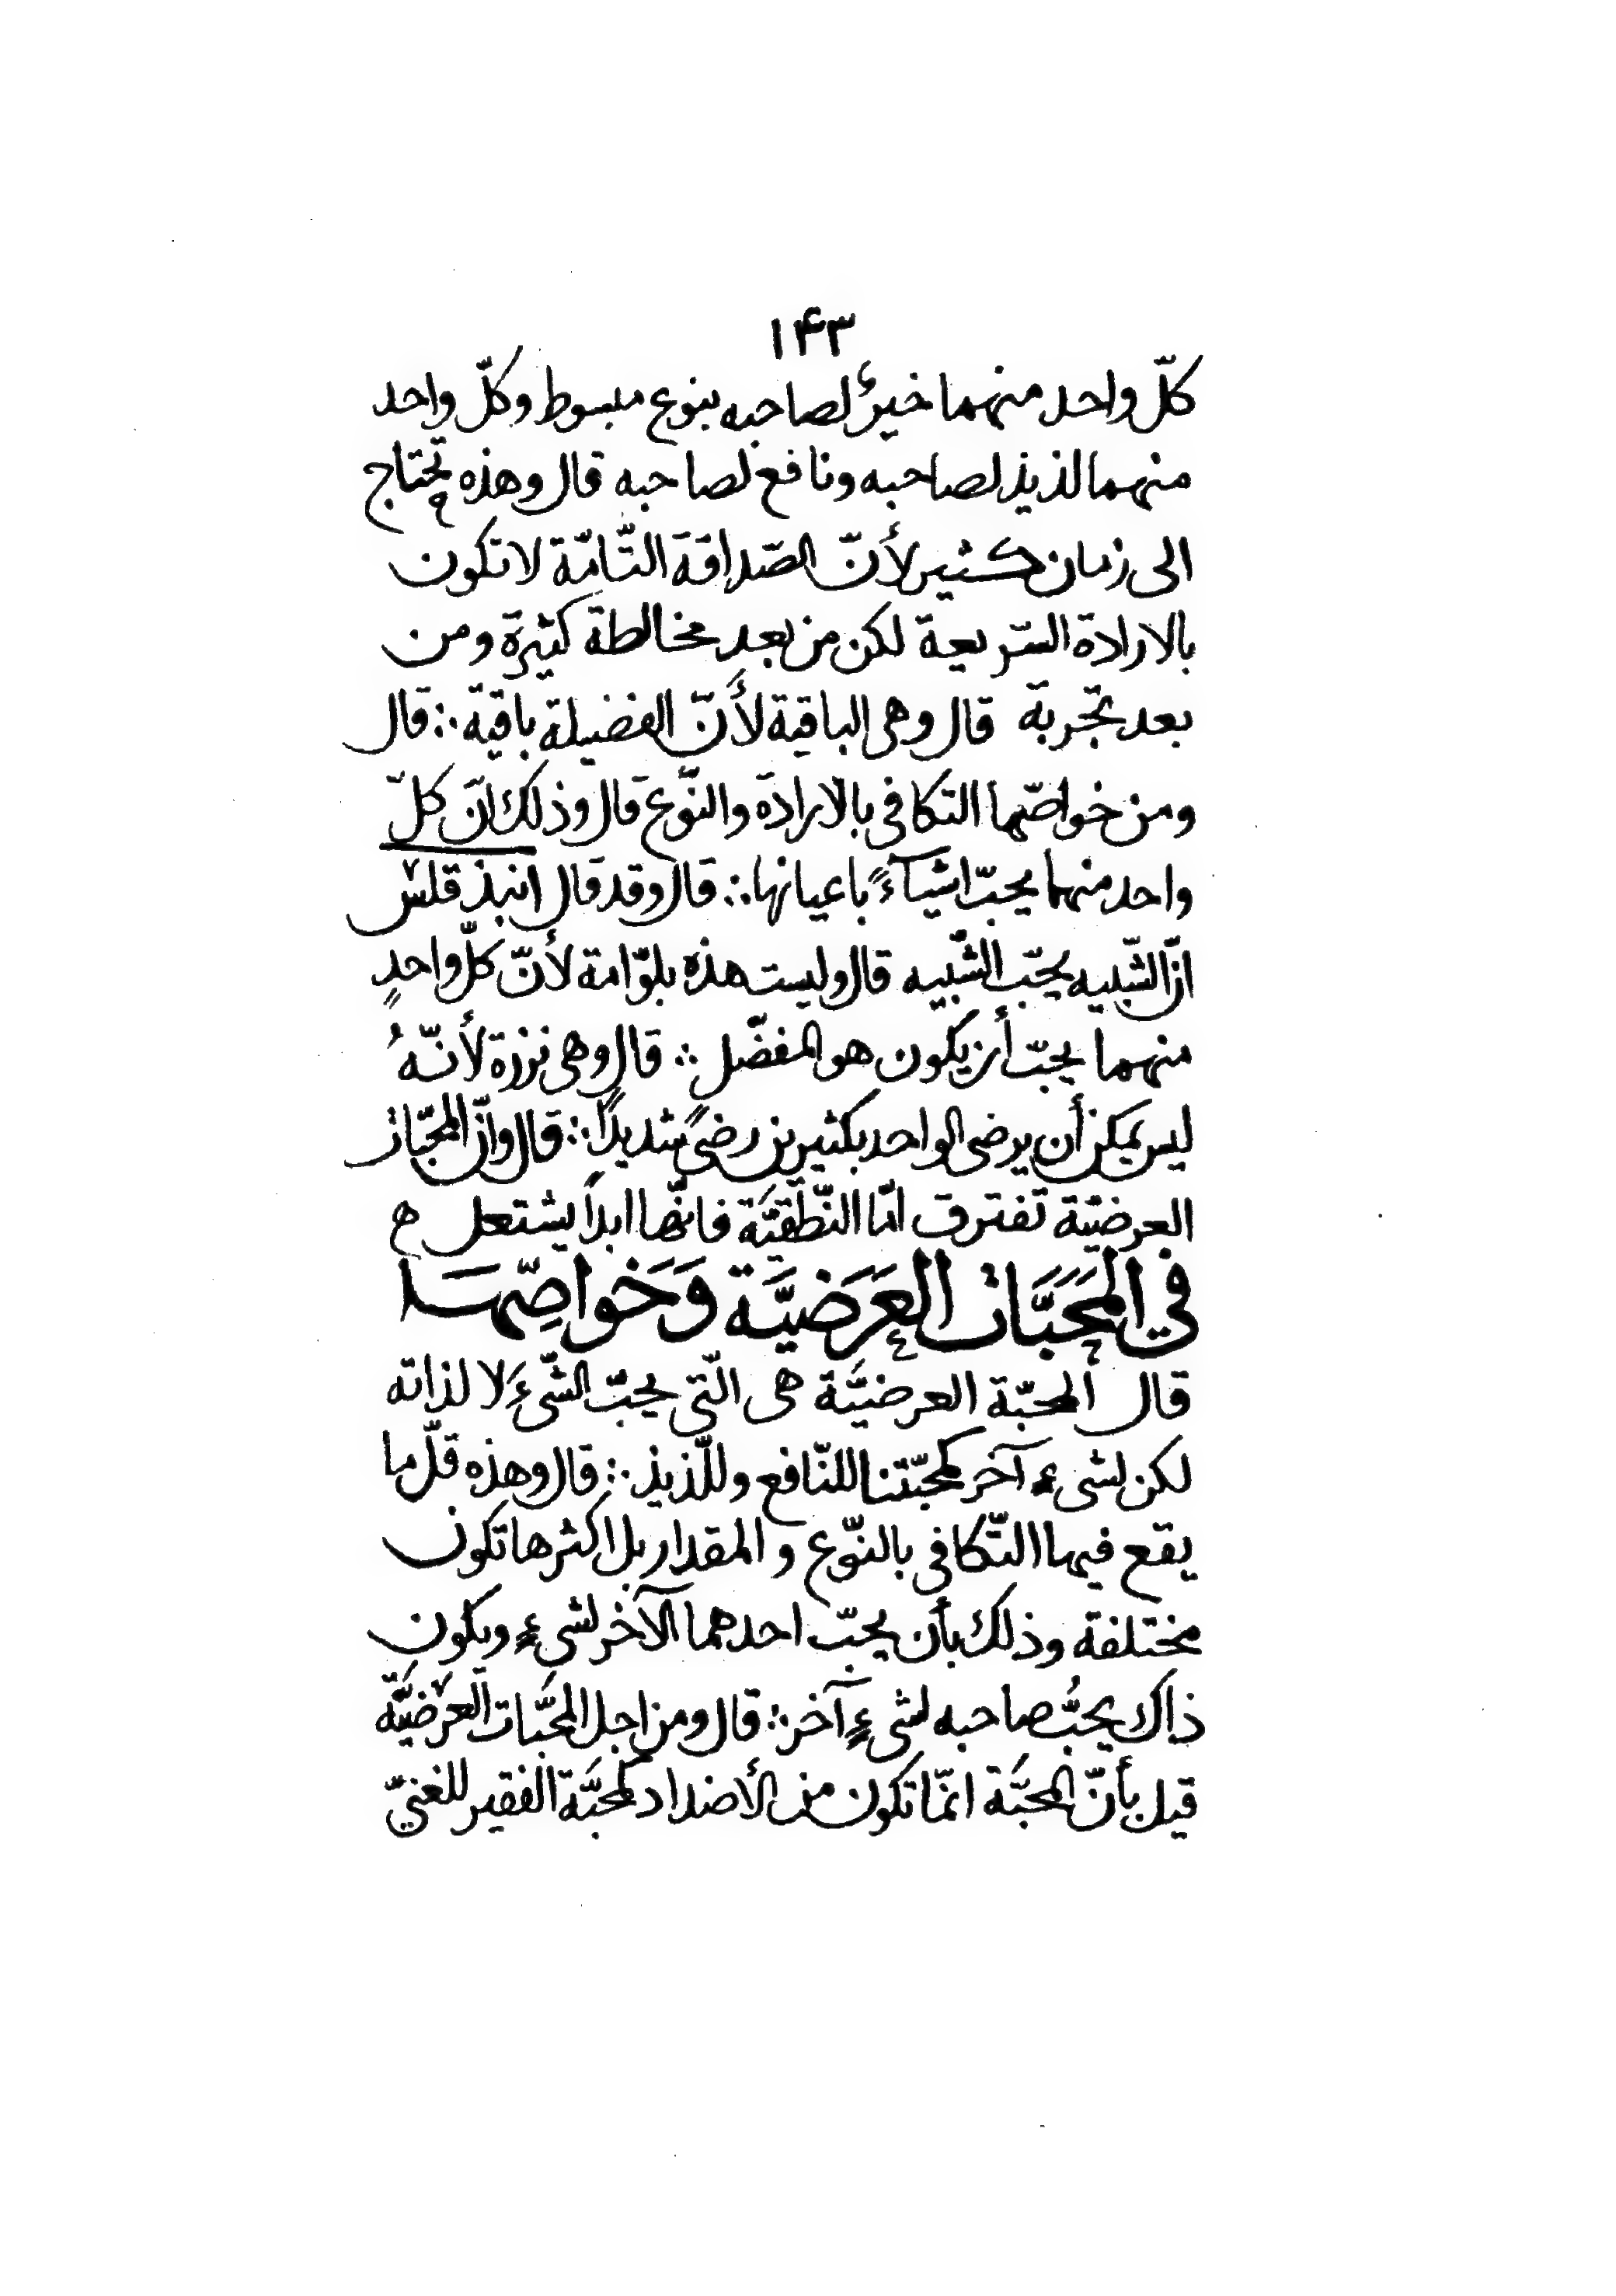 ۱۴۳
كلّ واحد منهما خيرٌ لصاحبه بنوع مبسوط وكلّ واحد
منهما لذيذ لصاحبه ونافع لصاحبه قال وهذه تحتاج
الى زمان كثير لأنّ الصّداقة التّامّة لا تكون
بالارادة السّريعة لكن من بعد مخالطة كثيرة ومن
بعد تجربة قال وهى الباقية لأنّ الفضيلة باقية ∴ قال
ومن خواصّها التكافى بالارادة والنّوع قال وذلك انّ كلّ
واحد منهما يحبّ اشيآءً باعيانها ∴ قال وقد قال انبذ قلس
انّ الشّبيه يحبّ الشّبيه قال وليست هذه بلوّامة لأنّ كلّ واحدٍ
منهما يحبّ أن يكون هو المفضّل ∴ قال وهى نزرة لأنّهُ
ليس يمكن أن يرضى الواحد بكثيرين رضىً شديدًا ∴ قال وانّ المحبّات
العرضيّة تفترق امّا النّطقيَّة فانّها ابدًا يشتعل ه
في المَحَبَّات العَرَضيَّة وَخَواصِّهَا
قال المحبّة العرضيَّة هى الّتي يحبّ الشّىءَ لا لذاته
لكن لشىءٍ آخر كمحبّتنا للنّافع وللّذيذ ∴ قال وهذه قلّ ما
يقع فيها التّكافى بالنّوع و المقدار بل اكثرها تكون
مختلفة وذلك بأن يحبّ احدهما الآخر لشىءٍ ويكون
ذاك يحبُّ صاحبه لشىءٍ آخر ∴ قال ومن اجل المحبَّات العَرَضيَّة
قيل بأنّ المحبَّة انمّا تكون من الأضداد كمحبَّة الفقير للغنىّ